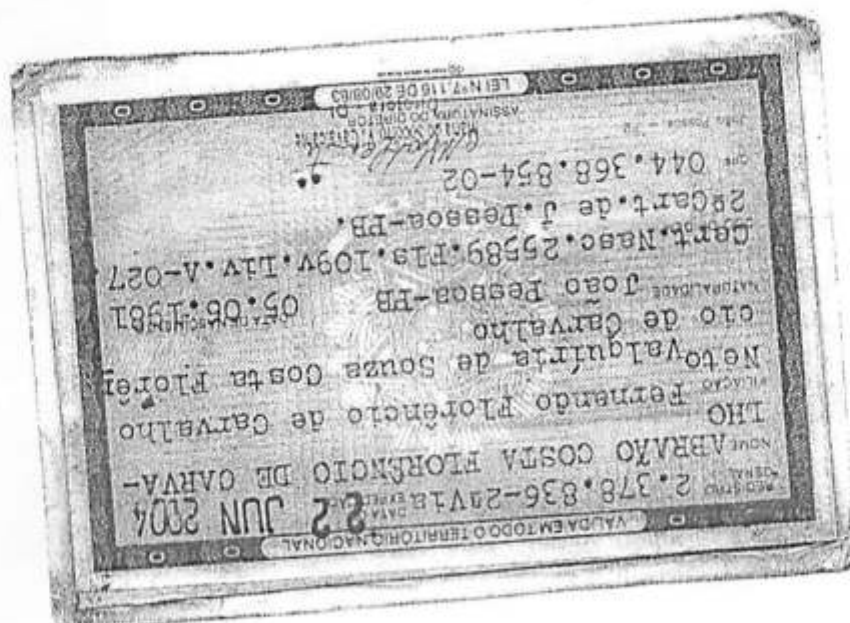 VÁLIDA EM TODO O TERRITÓRIO NACIONAL
REGISTRO GERAL 2.378.836-2ªVia DATA DE EXPEDIÇÃO 22 JUN 2004
NOME ABRAÃO COSTA FLORÊNCIO DE CARVA-
LHO
FILIAÇÃO Fernando Florêncio de Carvalho
Neto Valquíria de Souza Costa Florên
cio de Carvalho
NATURALIDADE João Pessoa-PB DATA DE NASCIMENTO 05.06.1981
Cert.Nasc.25589.Fls.109v.Liv.A-027
2ºCart.de J.Pessoa-PB.
CPF 044.368.854-02
João Pessoa - PB
ASSINATURA DO DIRETOR
LEI Nº 7.116 DE 29/08/83